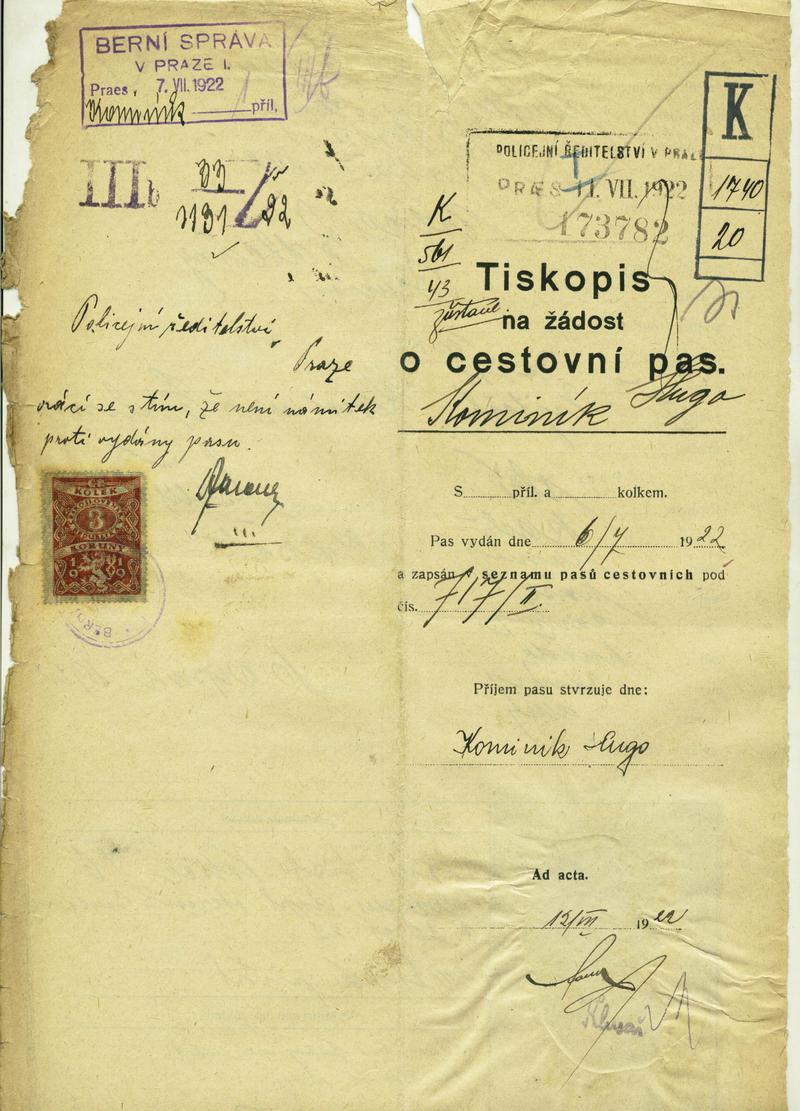 BERNÍ SPRÁVA
V PRAZE I.
Praes, 7. VII. 1922
Kominík příl.
IIIb 33
1131/22
Policejní ředitelství
Praze
vrácí se s tím, že není námitek
proti vydány pasu.
III
KOLEK
3
KORUNY
1919
K
1740
20
POLICEJNÍ ŘEDITELSTVÍ V PRAZE
PRAES 11. VII. 1922
173782
K
561
43
zůstane
Tiskopis
na žádost
o cestovní pas.
Kominík Hugo
S příl. a kolkem.
Pas vydán dne 6/7 1922
a zapsán v seznamu pasů cestovních pod
čís. 717/II.
Příjem pasu stvrzuje dne:
Kominik Hugo
Ad acta.
12/VII 1922